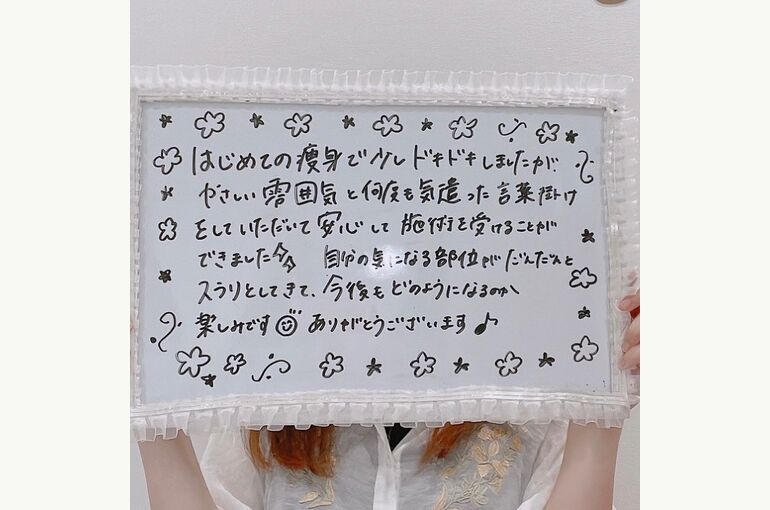 はじめての痩身で少しドキドキしましたが、
やさしい雰囲気と何度も気遣った言葉掛け
をしていただいて安心して施術を受けることが
できました 自分の気になる部位がだんだんと
スラリとしてきて、今後もどのようになるのか
楽しみです ありがとうございます♪